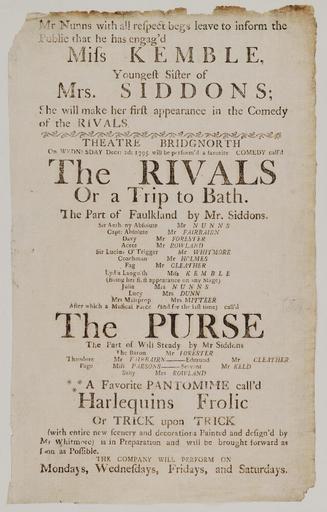 Mr Nunns with all respect begs leave to inform the
Public that he has engag'd
Miſs KEMBLE,
Youngeſt Siſter of
Mrs. SIDDONS;
She will make her firſt appearance in the Comedy
of the RIVALS.
THEATRE BRIDGNORTH
On WEDNESDAY 1795 will be perform'd a favorite COMEDY call'd
The RIVALS
Or a Trip to Bath.
The Part of Faulkland by Mr. Siddons.
Sir Anthony Abſolute Mr NUNNS
Capt Abſolute Mr FAIRBAIRN
Davy Mr FORESTER
Acres Mr ROWLAND
Sir Lucius O'Trigger Mr WHITMORE
Coachman Mr HOLMES
Fag Mr CLEATHER
Lydia Languiſh Miſs KEMBLE
(Being her firſt appearance on any Stage)
Julia Mrs NUNNS
Lucy Mrs DUNN
Mrs Malaprop Mrs MITTEER
After which a Muſical Farce (and for the laſt time) call'd
The PURSE
The Part of Will Steady by Mr Siddons
The Baron Mr FORESTER
Theodore Mr FAIRBAIRN——Edmund Mr CLEATHER
Page Miſs PARSONS——Servant Mr KELD
Sally Mrs ROWLAND
⁂ A Favorite PANTOMIME call'd
Harlequins Frolic
Or TRICK upon TRICK
(with entire new ſcenery and decorations Painted and deſign'd by
Mr Whitmore) is in Preparation and will be brought forward as
ſoon as Poſſible.
THE COMPANY WILL PERFORM ON
Mondays, Wedneſdays, Fridays, and Saturdays.